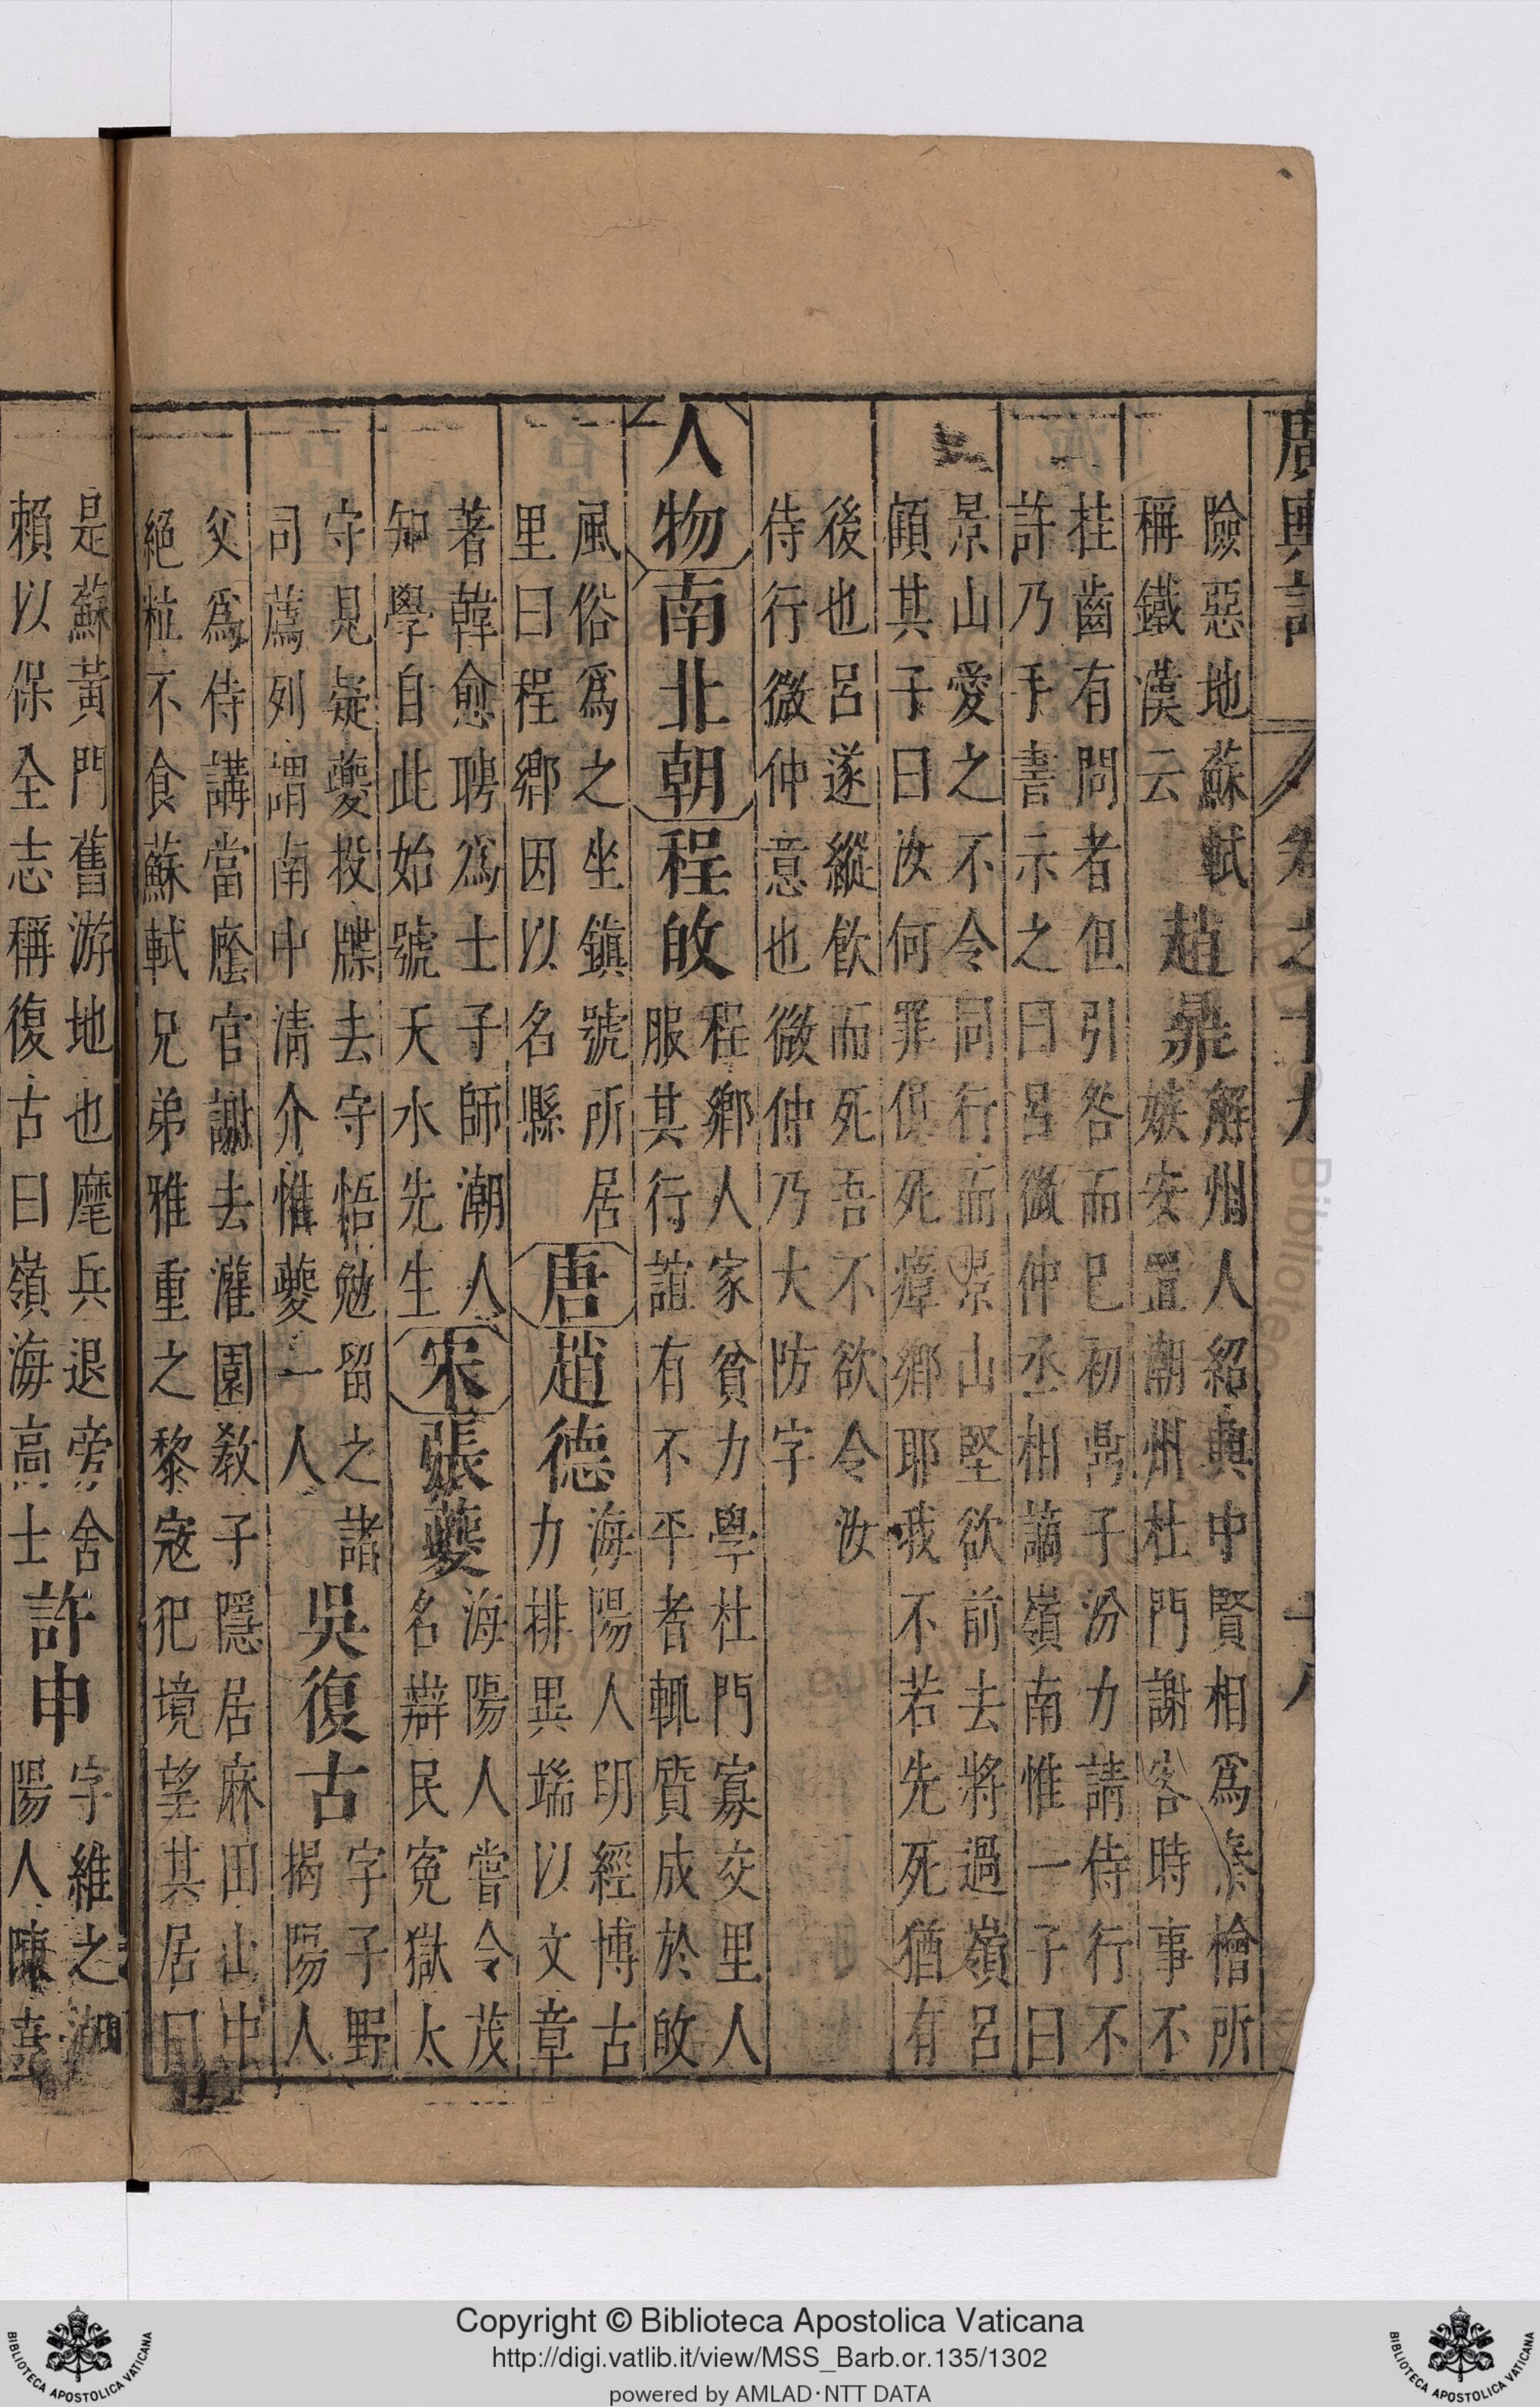 廣輿記 卷之十九 十八
險惡地蘇軾
稱鐵漢云
趙鼎
解州人紹興中賢相爲秦檜所
嫉安置潮州杜門謝客時事不
桂齒有問者但引咎而已初鼎子汾力請侍行不
許乃手書示之曰呂微仲丞相謫嶺南惟一子曰
景山愛之不令同行而景山堅欲前去將過嶺呂
顧其子曰汝何罪俱死瘴鄉耶我不若先死猶有
後也呂遂縱飲而死吾不欲令汝
侍行微仲意也微仲乃大防字
人物 南北朝 程旼
程鄉人家貧力學杜門寡交里人
服其行誼有不平者輒質成於旼
風俗爲之坐鎮號所居
里曰程鄉因以名縣
唐 趙德
海陽人明經博古
力排異端以文章
著韓愈聘爲士子師潮人
知學自此始號天水先生
宋 張夔
海陽人嘗令茂
名辯民寃獄太
守見疑夔投牒去守悟勉留之諸
司薦列謂南中淸介惟夔一人
吳復古
字子野
揭陽人
父爲侍講當廕官謝去灌園敎子隱居麻田山中
絕粒不食蘇軾兄弟雅重之黎寇犯境望其居曰
是蘇黃門舊游地也麾兵退旁舍
賴以保全志稱復古曰嶺海高士
許申
字維之潮
陽人陳堯
Copyright © Biblioteca Apostolica Vaticana
http://digi.vatlib.it/view/MSS_Barb.or.135/1302
powered by AMLAD·NTT DATA
BIBLIOTECA APOSTOLICA VATICANA
BIBLIOTECA APOSTOLICA VATICANA